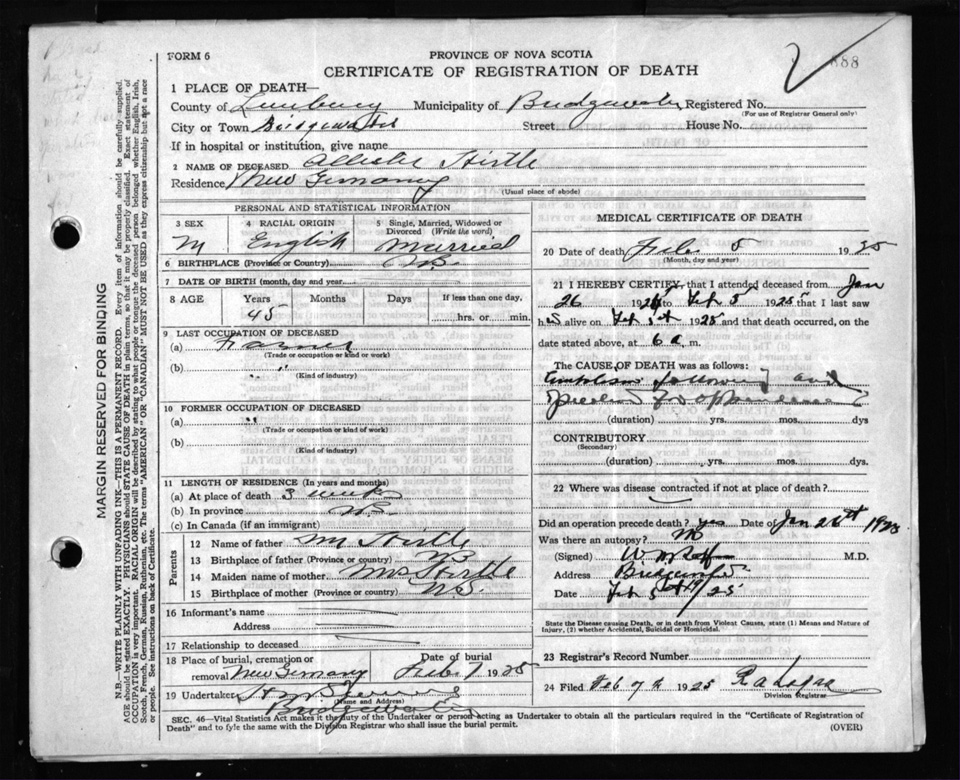 FORM 6
888
PROVINCE OF NOVA SCOTIA
CERTIFICATE OF REGISTRATION OF DEATH
1 PLACE OF DEATH—
County of Lunburg Municipality of Bridgewater Registered No.
(For use of Registrar General only)
City or Town Bridgewater Street House No.
If in hospital or institution, give name
2 NAME OF DECEASED Hirtle
Residence New Germany
(Usual place of abode)
PERSONAL AND STATISTICAL INFORMATION
3 SEX
M
4 RACIAL ORIGIN
English
5 Single, Married, Widowed or Divorced (Write the word)
Married
6 BIRTHPLACE (Province or Country) N.S.
7 DATE OF BIRTH (month, day and year)
8 AGE Years Months Days If less than one day,
45 hrs. or min.
9 LAST OCCUPATION OF DECEASED
(a) Farmer
(Trade or occupation or kind of work)
(b) "
(Kind of industry)
10 FORMER OCCUPATION OF DECEASED
(a) "
(Trade or occupation or kind of work)
(b)
(Kind of industry)
11 LENGTH OF RESIDENCE (In years and months)
(a) At place of death 3 weeks
(b) In province N.S.
(c) In Canada (if an immigrant)
Parents
12 Name of father M Hirtle
13 Birthplace of father (Province or country) N.S.
14 Maiden name of mother Mrs Hirtle
15 Birthplace of mother (Province or country) N.S.
16 Informant's name
Address
17 Relationship to deceased
18 Place of burial, cremation or removal New Germany
Date of burial Feb. 7 1925
19 Undertaker
(Name and Address)
Bridgewater
MEDICAL CERTIFICATE OF DEATH
20 Date of death Feb 5 1925
(Month, day and year)
21 I HEREBY CERTIFY that I attended deceased from Jan
26 1925 to Feb 5 1925 that I last saw
h alive on Feb 5th 1925 and that death occurred, on
date stated above, at 6 a. m.
The CAUSE OF DEATH was as follows:
Embolism following
(duration) yrs. mos. dys
CONTRIBUTORY
(Secondary)
(duration) yrs. mos. dys.
22 Where was disease contracted if not at place of death?
Did an operation precede death? yes Date of Jan 26th 1925
Was there an autopsy? No
(Signed) M.D.
Address Bridgewater
Date Feb 5th/25
State the Disease causing Death, or in death from Violent Causes, state (1) Means and Nature of Injury, (2) whether Accidental, Suicidal or Homicidal.
23 Registrar's Record Number
24 Filed Feb 7th 1925
Division Registrar
SEC. 46—Vital Statistics Act makes it the duty of the Undertaker or person acting as Undertaker to obtain all the particulars required in the "Certificate of Registration of
Death" and to fyle the same with the Division Registrar who shall issue the burial permit.
(OVER)
MARGIN RESERVED FOR BINDING
N.B.—WRITE PLAINLY WITH UNFADING INK—THIS IS A PERMANENT RECORD. Every item of information should be carefully supplied.
AGE should be stated EXACTLY. PHYSICIANS should STATE CAUSE OF DEATH in plain terms, so that it may be properly classified. Exact statement of
OCCUPATION is very important. RACIAL ORIGIN will be described by stating to what people or tongue the deceased person belonged whether English, Irish,
Scotch, French, German, Russian, Ruthenian, etc. The terms "AMERICAN" OR "CANADIAN" MUST NOT BE USED as they express citizenship but not a race
or people. See instructions on back of Certificate.